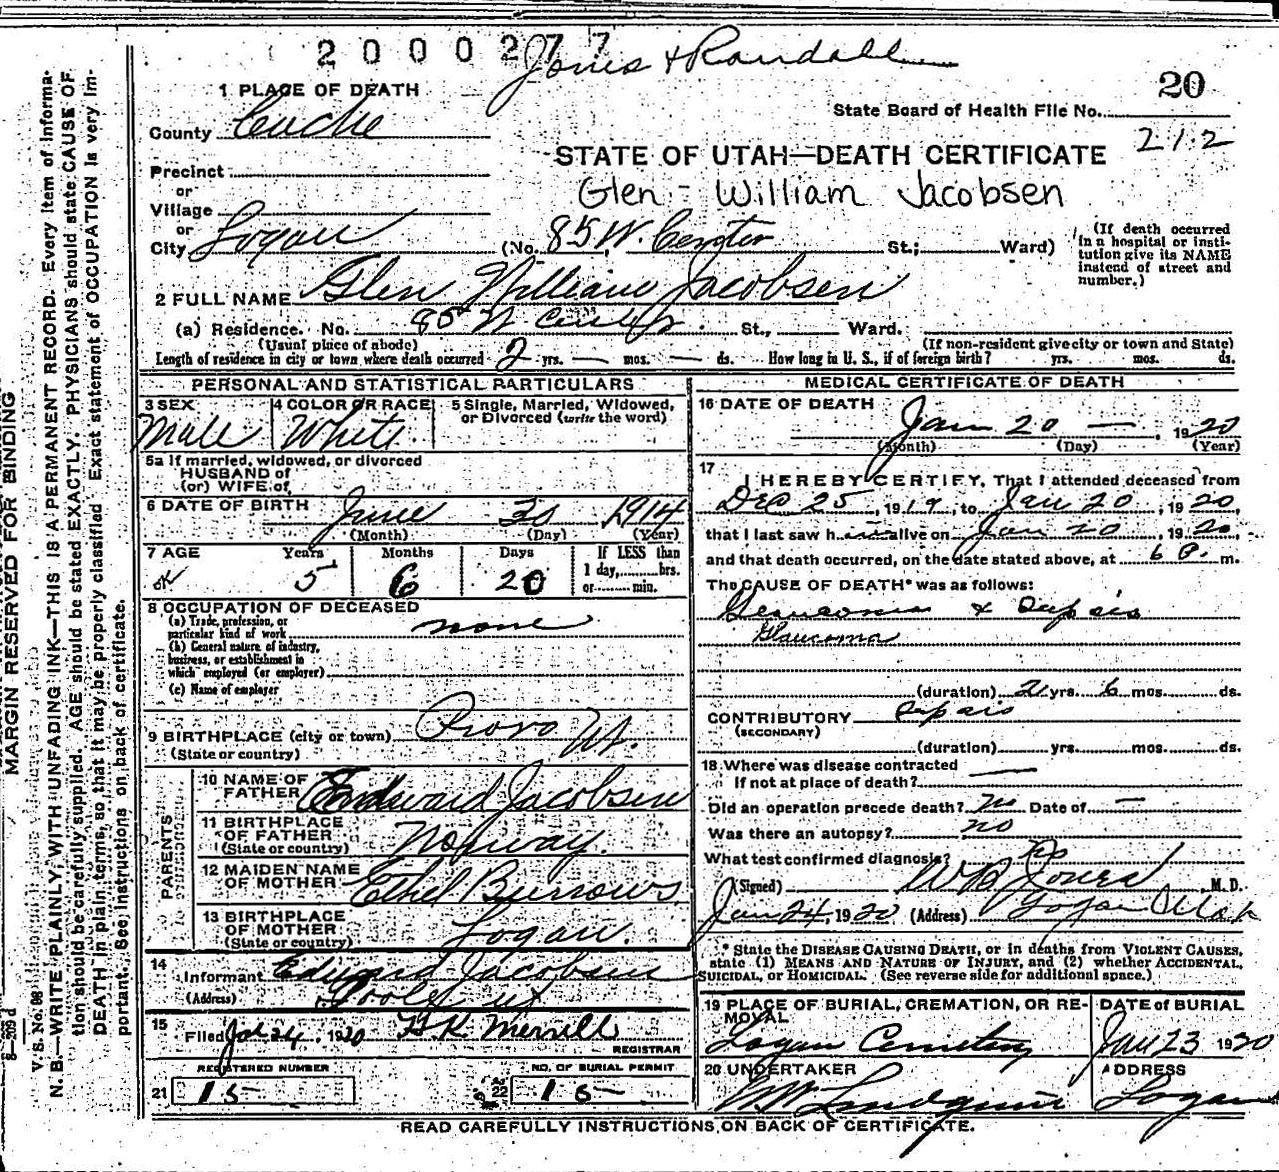 2000277 Jones & Randall
20
1 PLACE OF DEATH
State Board of Health File No.
County Cache
212
STATE OF UTAH—DEATH CERTIFICATE
Precinct
or
Glen - William Jacobsen
Village
or
City Logan (No. 85 W. Center St.; Ward)
(If death occurred in a hospital or insti-
tution give its NAME
instead of street and
number.)
2 FULL NAME Glen William Jacobsen
(a) Residence. No. 85 W Center. St., Ward.
(Usual place of abode) (If non-resident give city or town and State)
Length of residence in city or town where death occurred 2 yrs. — mos. — ds. How long in U. S., if of foreign birth? yrs. mos. ds.
PERSONAL AND STATISTICAL PARTICULARS
3 SEX 4 COLOR OR RACE 5 Single, Married, Widowed,
or Divorced (write the word)
Male White.
5a If married, widowed, or divorced
HUSBAND of
(or) WIFE of
6 DATE OF BIRTH June 30 1914
(Month) (Day) (Year)
7 AGE Years Months Days If LESS than
1 day, hrs.
or min.
5 6 20
8 OCCUPATION OF DECEASED
(a) Trade, profession, or
particular kind of work none
(b) General nature of industry,
business, or establishment in
which employed (or employer)
(c) Name of employer
9 BIRTHPLACE (city or town) Provo Ut.
(State or country)
PARENTS
10 NAME OF
FATHER Edward Jacobsen
11 BIRTHPLACE
OF FATHER
(State or country) Norway.
12 MAIDEN NAME
OF MOTHER Ethel Burrows
13 BIRTHPLACE
OF MOTHER
(State or country) Logan.
14
Informant Edward Jacobsen
(Address) Ut
15
Filed Jan 24, 1920 H K Merrill
REGISTRAR
REGISTERED NUMBER NO. OF BURIAL PERMIT
21 15 22 15
MEDICAL CERTIFICATE OF DEATH
16 DATE OF DEATH
Jan 20 —, 1920
(Month) (Day) (Year)
17
I HEREBY CERTIFY, That I attended deceased from
Dec 25, 1919, to Jan 20, 1920,
that I last saw him alive on Jan 20, 1920,
and that death occurred, on the date stated above, at 6 P. m.
The CAUSE OF DEATH* was as follows:
Glaucoma & Sepsis
Glaucoma
(duration) 2 yrs. 6 mos. ds.
CONTRIBUTORY Sepsis
(SECONDARY)
(duration) yrs. mos. ds.
18 Where was disease contracted
If not at place of death? —
Did an operation precede death? No Date of —
Was there an autopsy? no
What test confirmed diagnosis?
(Signed) Jones, M. D.
Jan 24, 1920 (Address) Logan Utah
* State the DISEASE CAUSING DEATH, or in deaths from VIOLENT CAUSES,
state (1) MEANS AND NATURE OF INJURY, and (2) whether ACCIDENTAL,
SUICIDAL, or HOMICIDAL. (See reverse side for additional space.)
19 PLACE OF BURIAL, CREMATION, OR RE-
MOVAL
Logan Cemetery
DATE of BURIAL
Jan 23 1920
20 UNDERTAKER
Lindquist
ADDRESS
Logan
READ CAREFULLY INSTRUCTIONS ON BACK OF CERTIFICATE.
MARGIN RESERVED FOR BINDING
V. S. No. 98
N. B.—WRITE PLAINLY, WITH UNFADING INK—THIS IS A PERMANENT RECORD. Every item of informa-
tion should be carefully supplied. AGE should be stated EXACTLY. PHYSICIANS should state CAUSE OF
DEATH in plain terms, so that it may be properly classified. Exact statement of OCCUPATION is very im-
portant. See instructions on back of certificate.